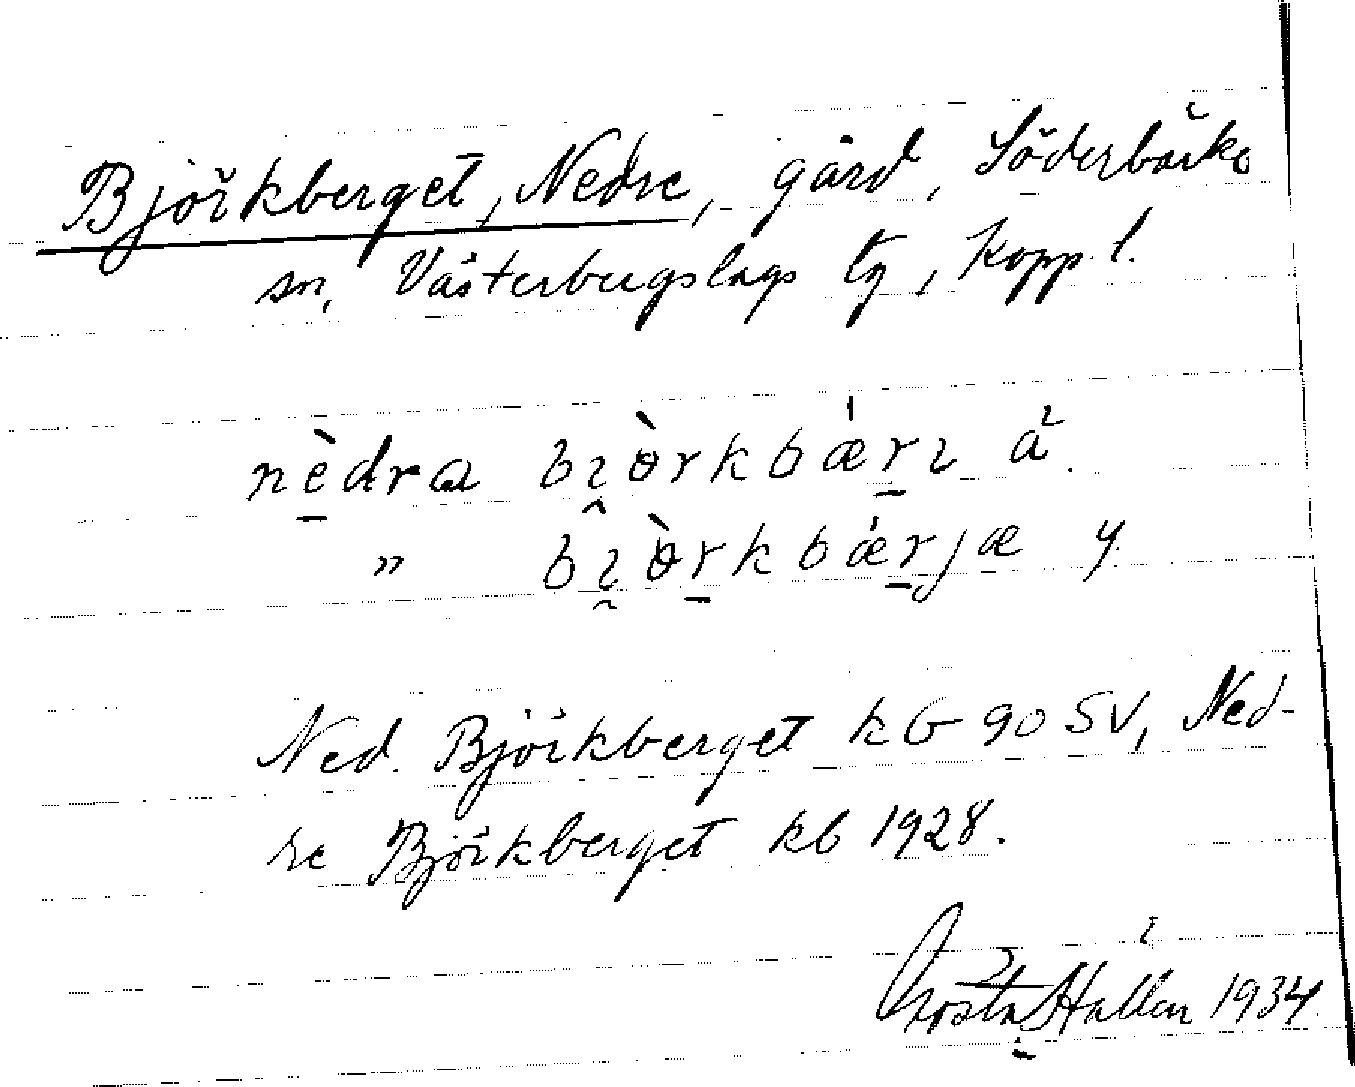 Björkberget, Nedre, gård, Söderbärke
sn, Västerbergslags tg, Kopp. l.
nè̱dra bı̯ɵ̀rkbǽṟı ä.
" bı̯ɵ̀ṟkbǽṟjæ y.
Ned. Björkberget kG 90 SV, Ned-
re Björkberget kb 1928.
Gösta Hallén 1934